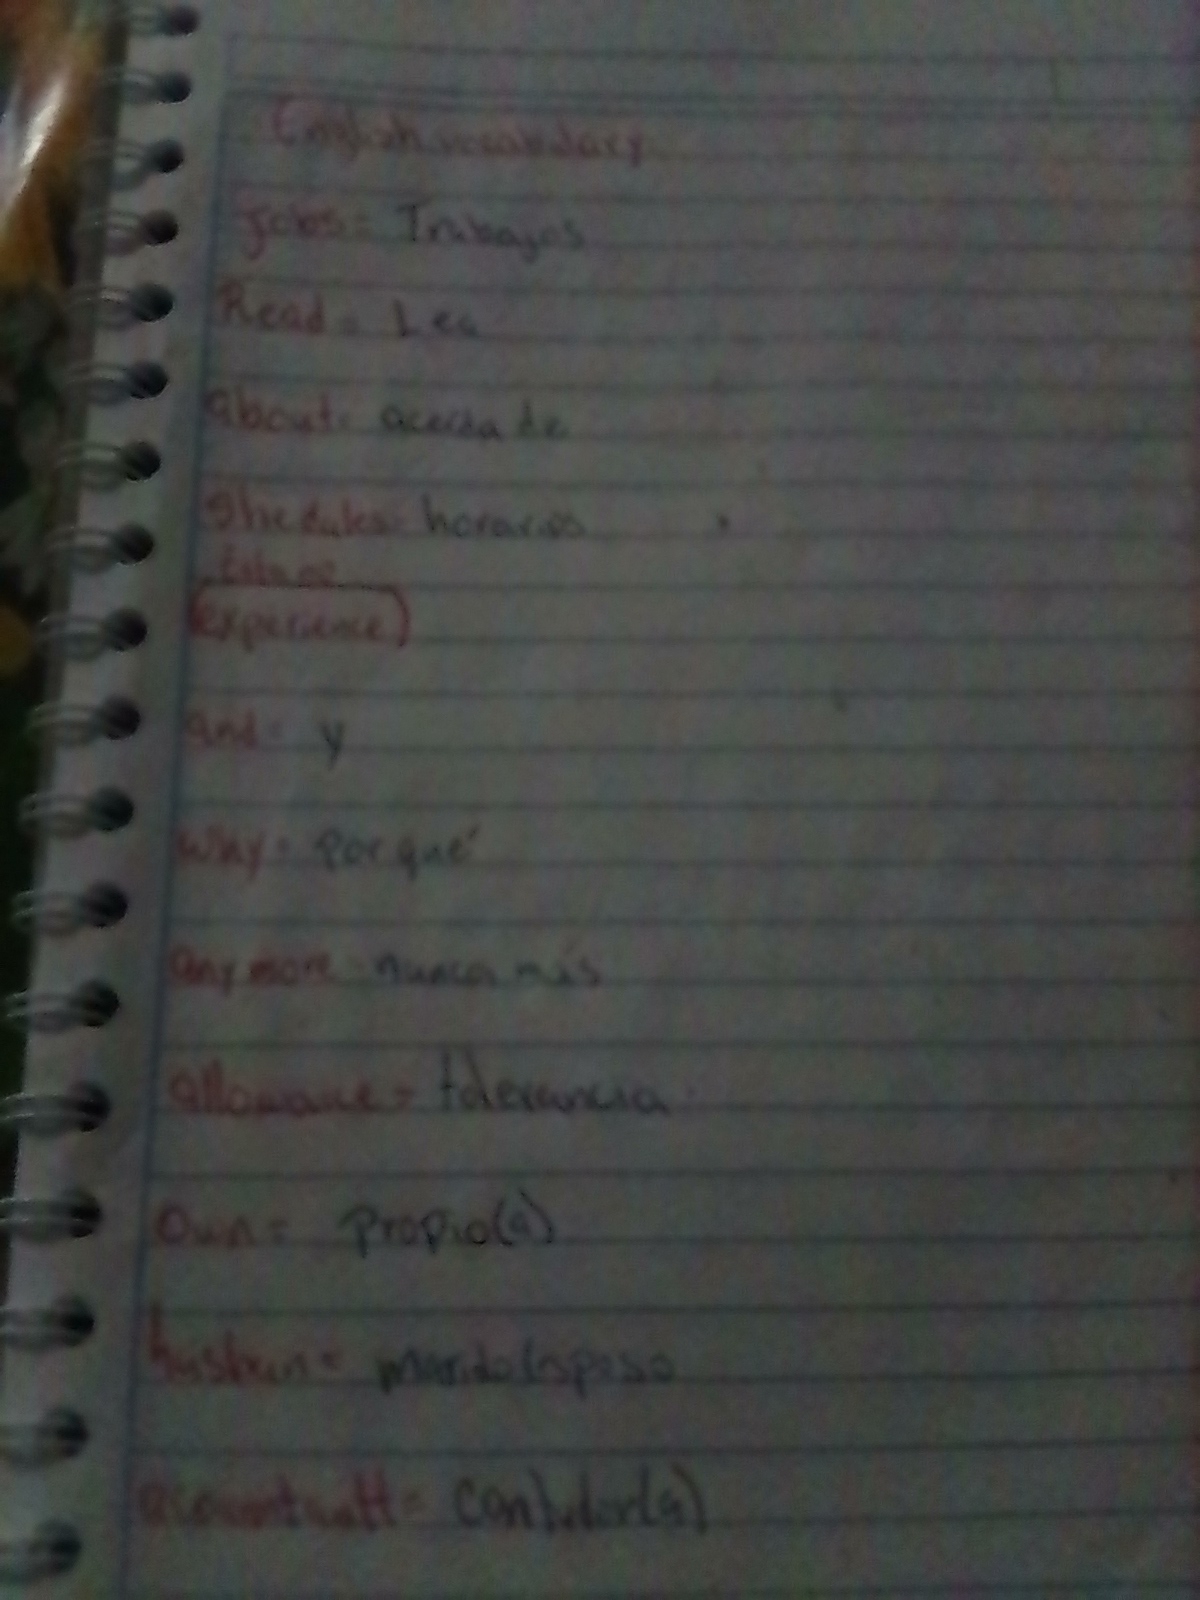 English vocabulary
Jobs = Trabajos
Read = Lea
about = acerca de
Shedules = horarios
experience
and = y
why = por qué
any more = nunca más
= tolerancia
Own = propio(a)
= marido/esposo
= Contador(a)